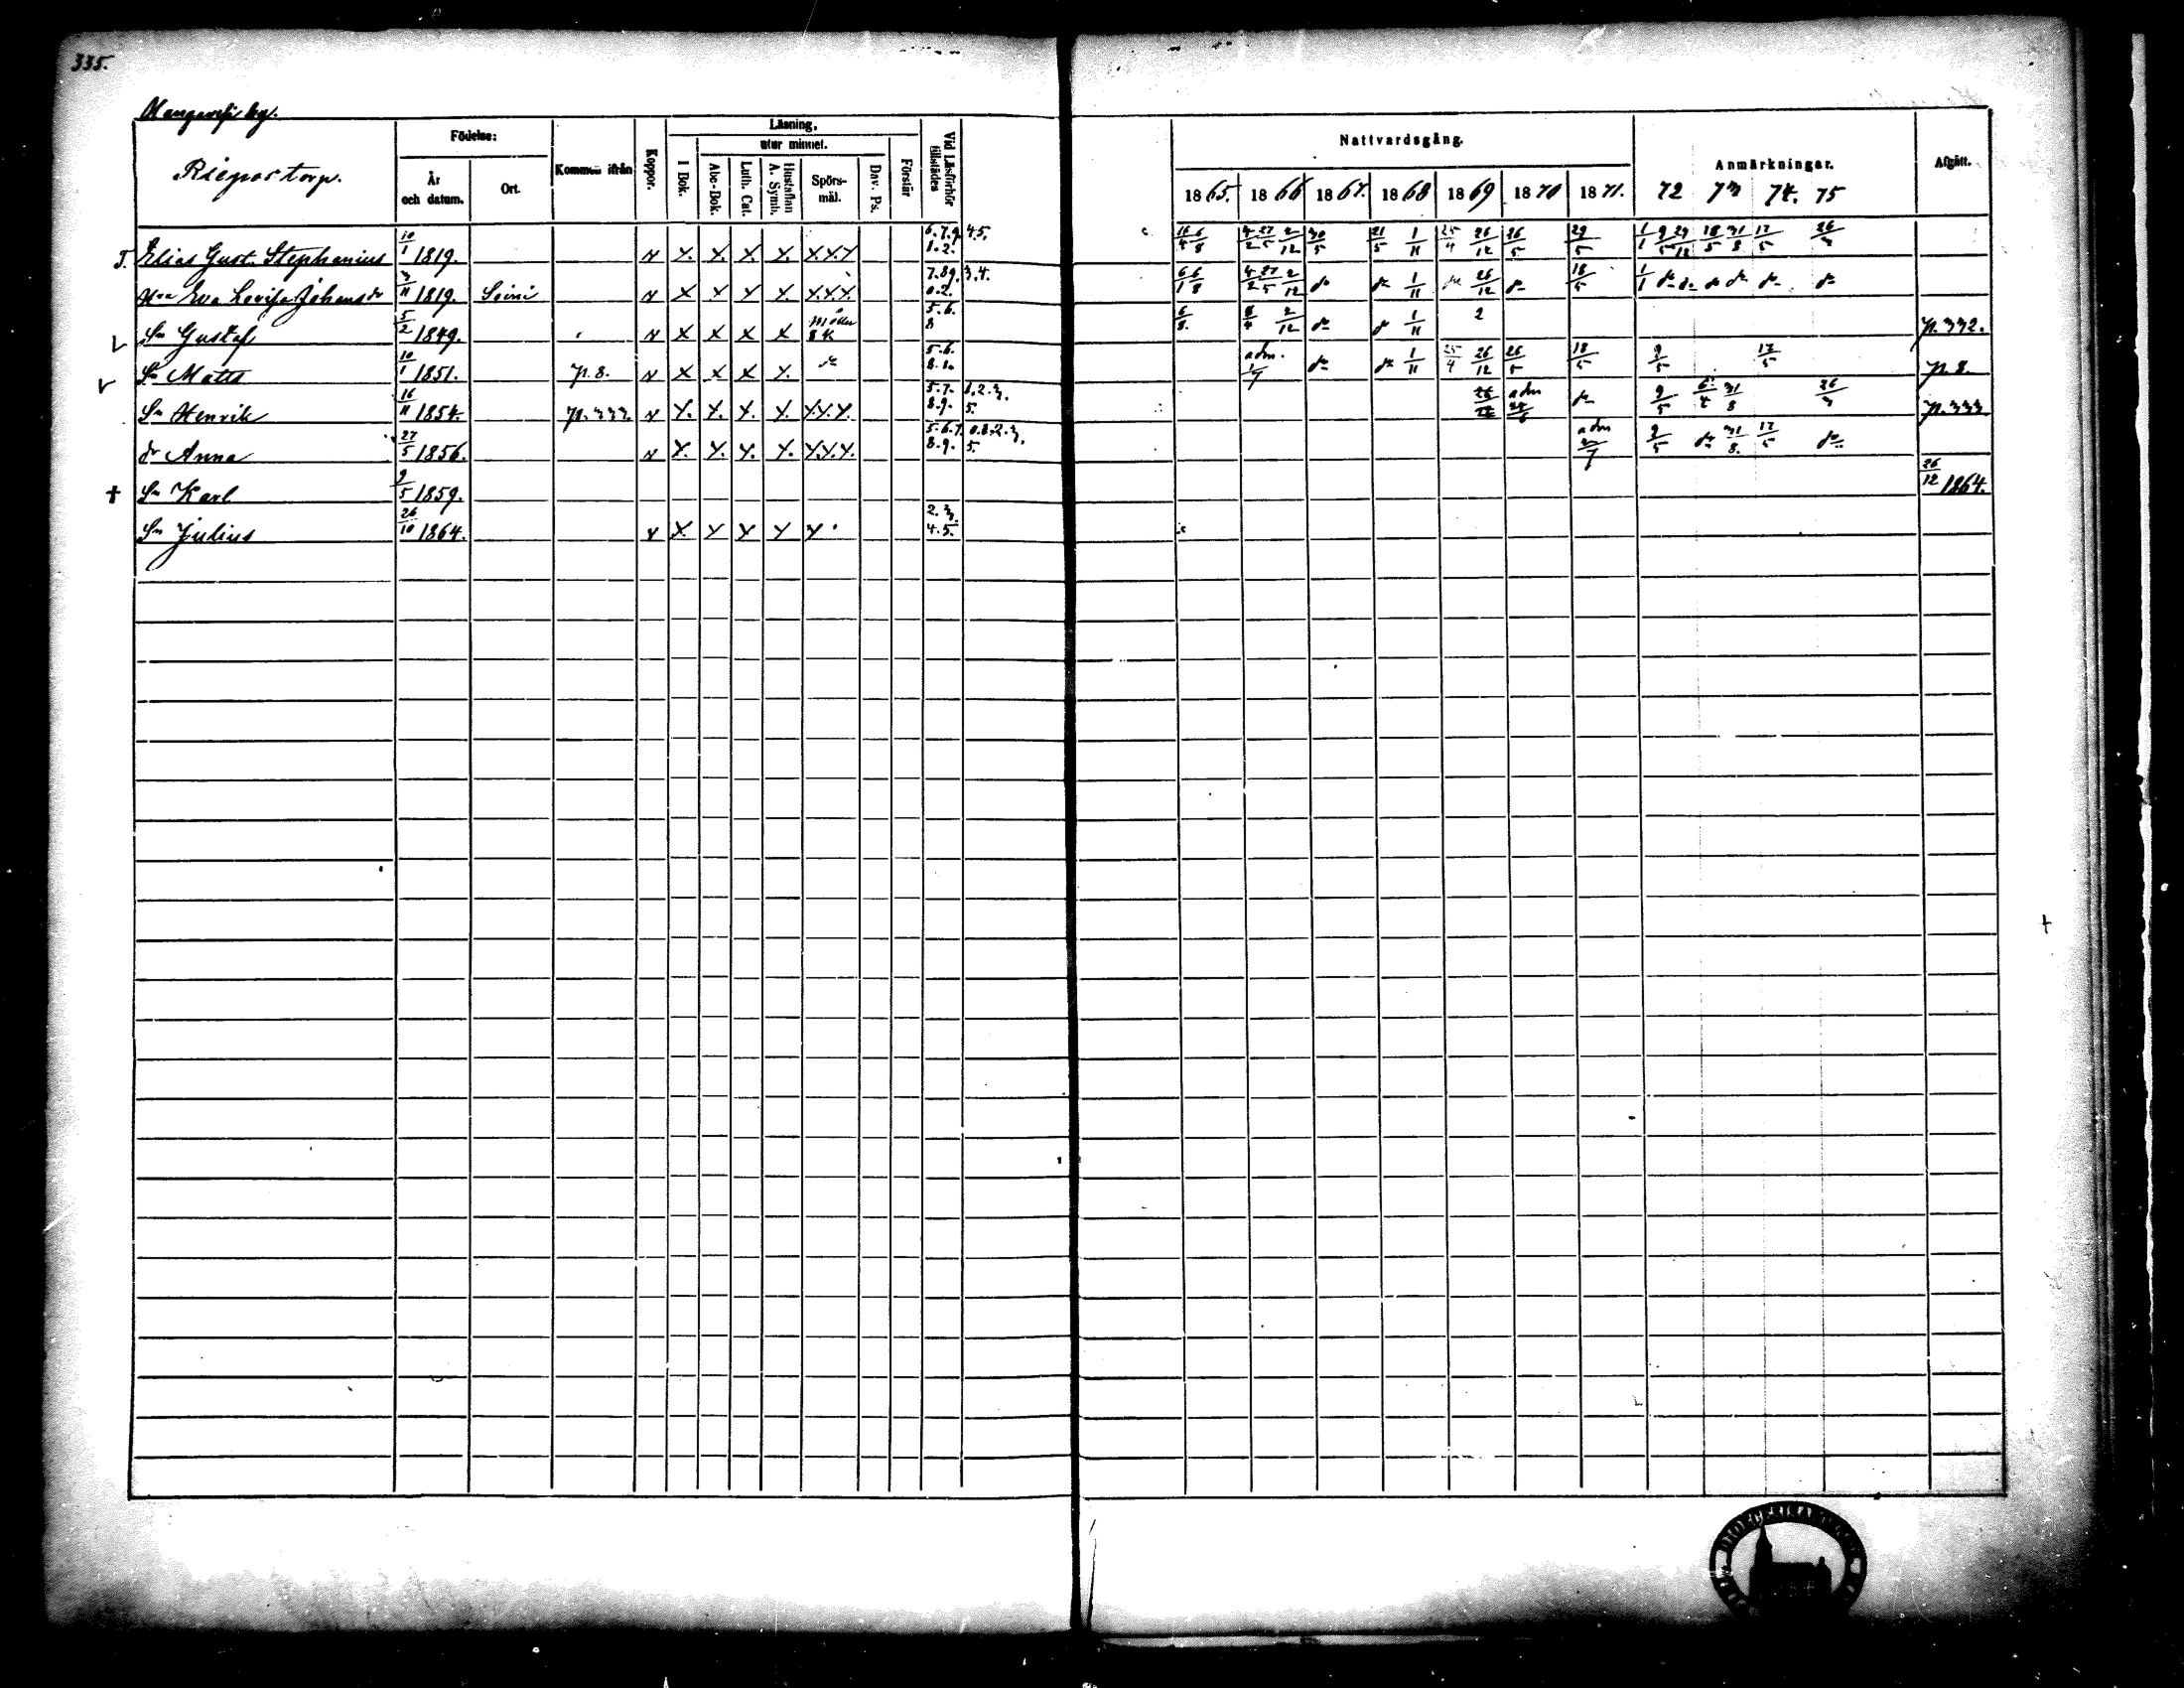 335.
by.
Riepos torp.
Födelse:
År och datum.
Ort.
Kommen ifrån
Koppor.
Läsning,
utur minnet.
I Bok.
Abc-Bok.
Luth. Cat.
Hustaflan A. Symb.
Spörs-mål.
Dav. Ps.
Förstår
Vid Läsförhör tillstädes
Nattvardsgång.
1865. 1866 1867. 1868 1869 1870 1871.
Anmärkningar.
72 73 74. 75
Afgått.
T. Elias Gust. Stephanius 10/1 1819. 6.7.9. 4.5. 1.2. 4/2 27/5 2/12 30/5 21/5 1/11 25/4 26/12 26/5 29/5 1/1 9/5 29/12 18/5 31/8 17/5 26/3
Hu Eva Lovisa Johansdr 3/11 1819. Soini 7.8.9. 3.4. 0.2. 6/1 6/8 4/2 27/5 2/12 do do 1/11 do 26/12 do 18/5 1/1 do do do do do do
Sn Gustaf 5/2 1849. 5.6. 8 6/8. 2/12 do do 1/11 2 p. 332.
Sn Matts 10/1 1851. p. 8. 5.6. 8.1. adm. 1/7 do do 1/11 25/4 26/12 26/5 18/5 9/5 17/5 p. 8.
Sn Henrik 16/11 1854. p. 333. 5.7. 1.2.3. 8.9. 5. adm do 9/5 31/8 26/3 p. 333
dr Anna 27/5 1856. 5.6.7. 0.1.2.3. 8.9. 5. adm 9/5 do 31/8. 17/5 do
† Sn Karl 9/5 1859. 26/12 1864.
Sn Julius 26/10 1864. 2.3. 4.5.